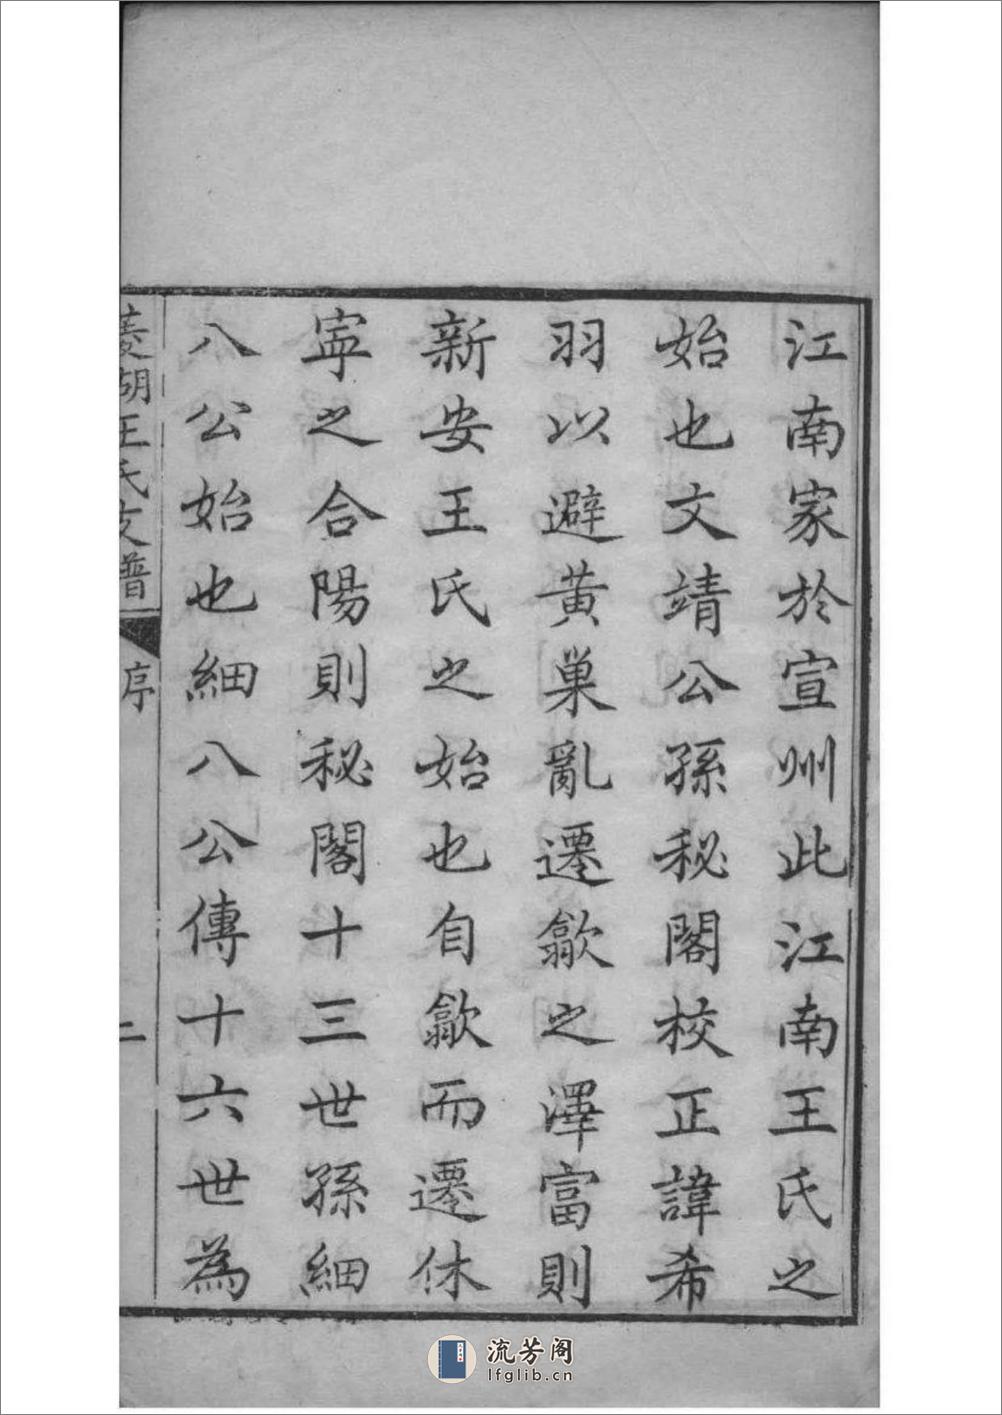 江南家於宣州此江南王氏之
始也文靖公孫秘閣校正諱希
羽以避黃巢亂遷歙之澤富則
新安王氏之始也自歙而遷休
寧之合陽則秘閣十三世孫細
八公始也細八公傳十六世為
菱湖王氏支譜
序
二
流芳阁
lfglib.cn